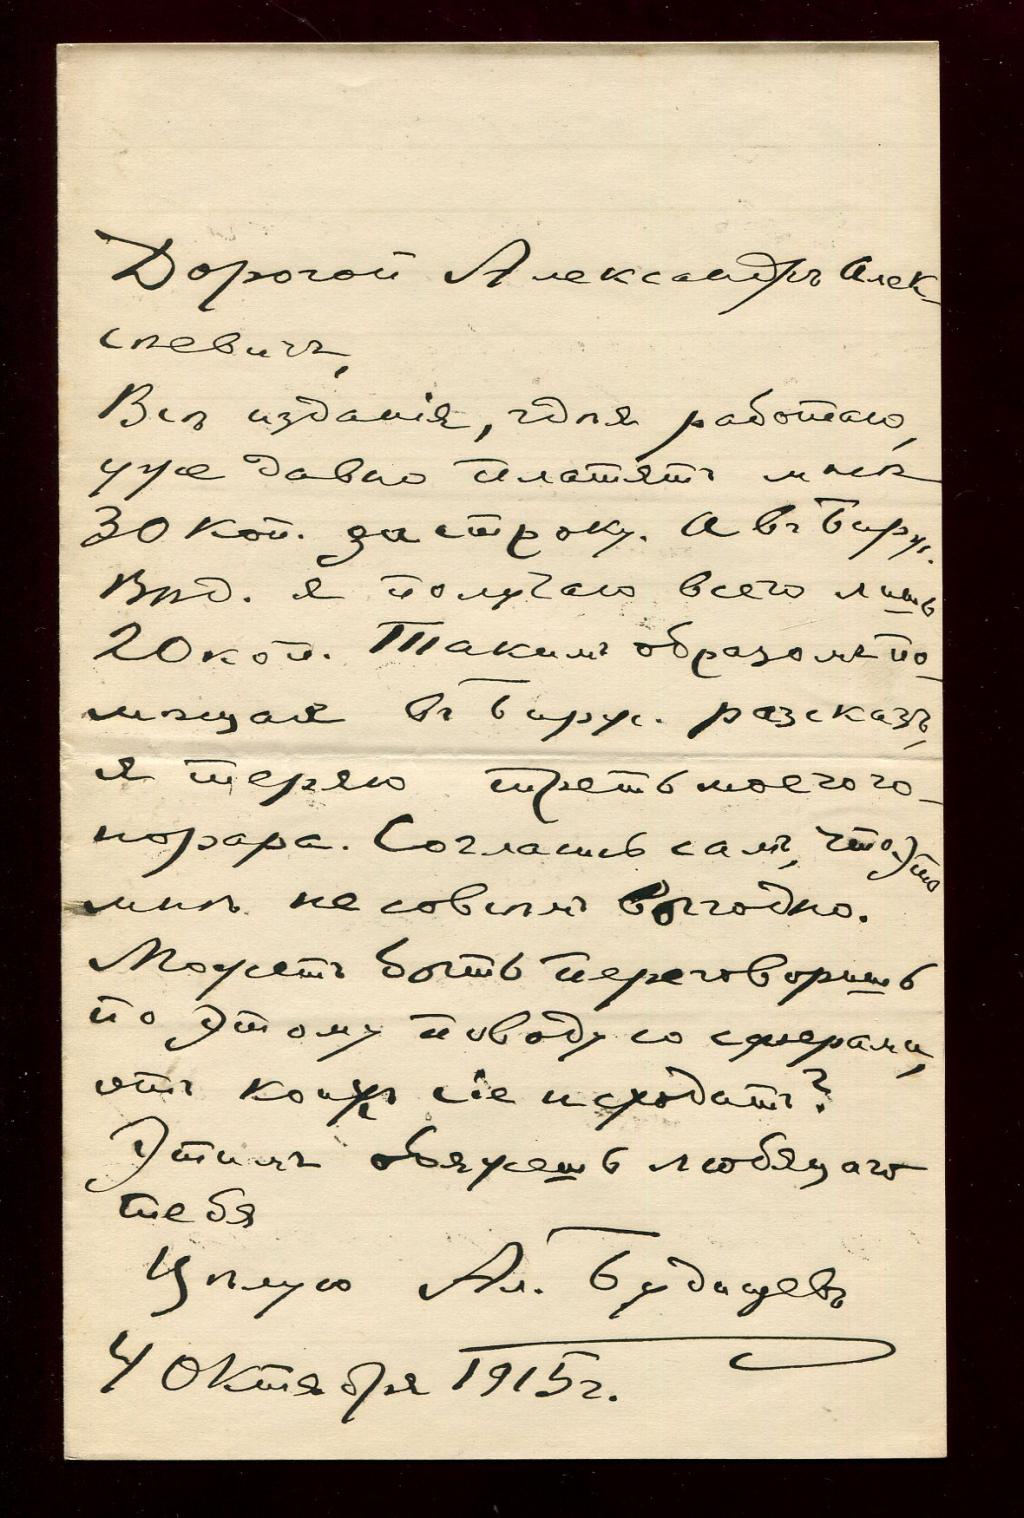 Дорогой Александръ Алек-
сѣевичъ,
Всѣ изданія, гдѣ я работаю,
уже давно платятъ мнѣ
30 коп. за строку. А въ Бирж.
Вѣд. я получаю всего лишь
20 коп. Такимъ образомъ по-
мѣщая въ Бирж. разсказъ,
я теряю треть моего го-
норара. Согласись самъ, что это
мнѣ не совсѣмъ выгодно.
Можетъ быть переговоришь
по этому поводу со сферами,
отъ коихъ сіе исходитъ?
Этимъ обяжешь любящаго
тебя
Цѣлую Ал. Будищевъ
4 Октября 1915 г.